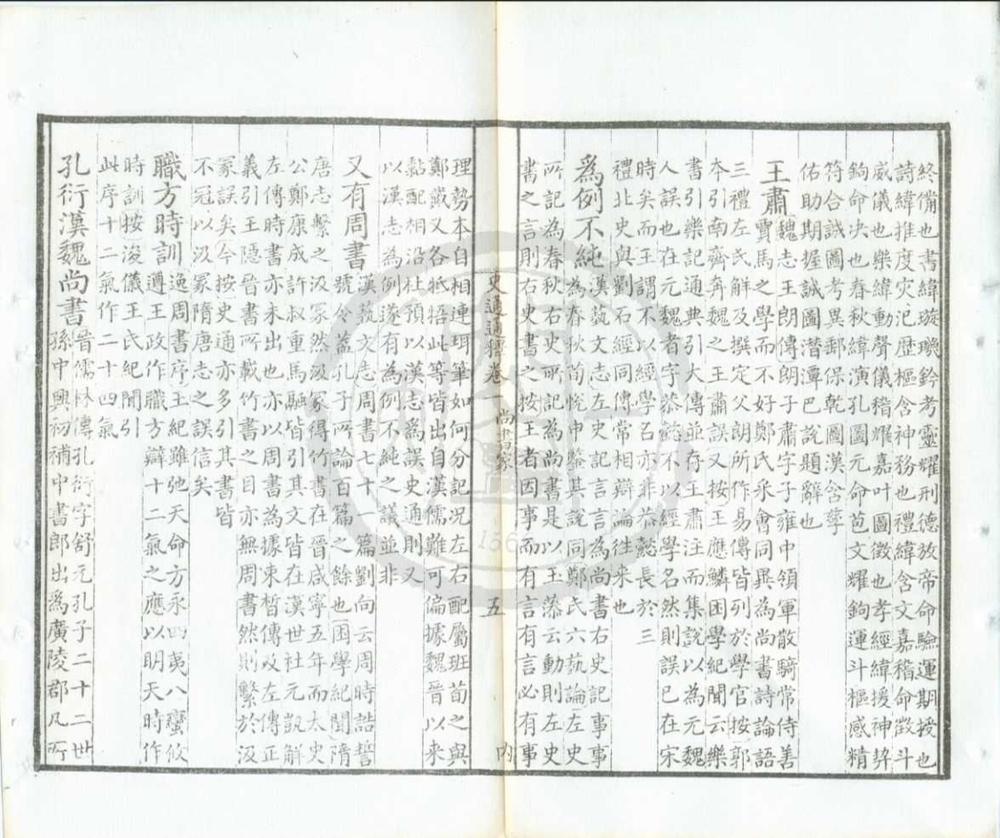 終備也書緯璇璣鈐考靈耀刑德放帝命驗運期授也
詩緯推度灾氾歷樞含神務也禮緯含文嘉稽命徵斗
威儀也樂緯動聲儀稽耀嘉叶圖徵也孝經緯援神契
鉤命决也春秋緯演孔圖元命苞文耀鉤運斗樞感精
符合誠圖考異郵保乾圖漢含孳
佑助期握誠圖潛潭巴說題辭也
王肅魏志王朗傳朗子肅字子雍中領軍散騎常侍善
賈馬之學而不好鄭氏采會同異為尚書詩論語
三禮左氏解及撰定父朗所作易傳皆列於學官按郭
本引南齊奔魏之王肅誤又按王應麟困學紀聞云樂
書引樂記通典引大傳並存王肅注而集說以為元魏
人誤也在元魏者字恭懿不以經學名然則誤已在宋
時矣而王謂不以經學名亦非恭懿長於三
禮北史與劉石經同傳常相辯論往来也
為例不純漢藝文志左史記言右史記事事
為春秋言為尚書荀悅申鑒其說同鄭氏六藝論左史
所記為春秋右史所記為尚書是以玉藻云動則左史
書之言則右史書之按王者因事而有言有言必有事
史通通釋卷一 尚書家 五 内
理勢本自相連珥筆如何分記况左右配屬班荀之與
鄭戴又各牴牾此等皆出自漢儒難可偏據魏晉以来
黏配相沿杜預以漢志為誤史通則又
以漢志為例遂有為例不純之議並非
又有周書漢藝文志周書七十一篇劉向云周時誥誓
號令蓋孔子所論百篇之餘也困學紀聞隋
唐志繫之汲冢然汲冢得竹書在晉咸寧五年而太史
公鄭康成許叔重馬融皆引其文皆在漢世杜元凱解
左傳時書亦未出也亦以周書為據束晳傳及左傳正
義引王隱晉書所載竹書之目亦無周書然則繫於汲
冢誤矣今按史通亦多引其書皆
不冠以汲冢隋唐志之誤信矣
職方時訓逸周書序王紀雖弛天命方永四夷八蠻攸
遵王政作職方辯十二氣之應以明天時作
時訓按浚儀王氏紀聞引
此序十二氣作二十四氣
孔衍漢魏尚書晉儒林傳孔衍字舒元孔子二十二世
孫中興初補中書郎出為廣陵郡凡所